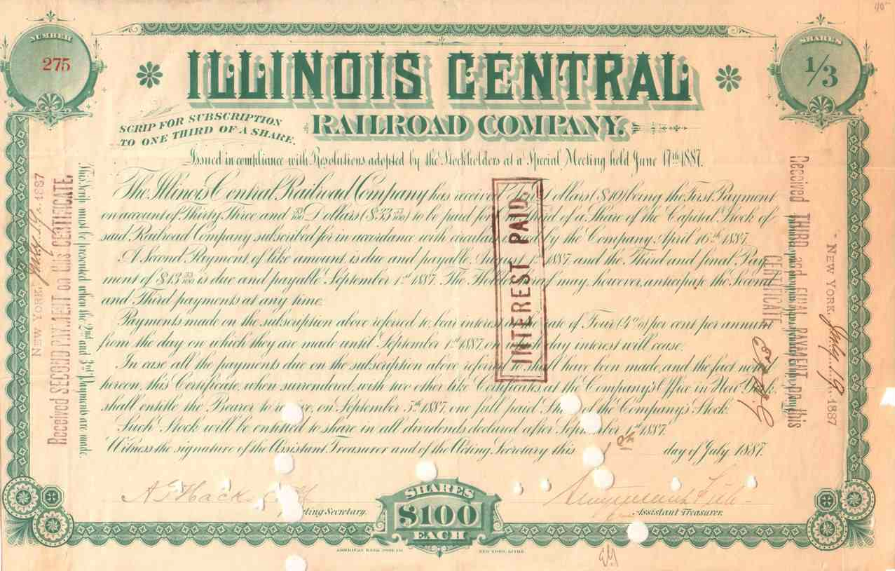 NUMBER
275
SHARES
1/3
ILLINOIS CENTRAL
RAILROAD COMPANY.
SCRIP FOR SUBSCRIPTION
TO ONE THIRD OF A SHARE.
Issued in compliance with Resolutions adopted by the Stockholders at a Special Meeting held June 17th 1887.
The Illinois Central Railroad Company has received Dollars ($10) being the First Payment
on account of Thirty Three and 33/100 Dollars ($33 33/100) to be paid for of a Share of the Capital Stock of
said Railroad Company subscribed for in accordance with by the Company April 16th 1887.
A Second Payment of like amount is due and payable August 1st 1887 and the Third and final Pay
ment of $13 33/100 is due and payable September 1st 1887. The Holder may, however, anticipate the Second
and Third payments at any time.
Payments made on the subscription above referred to, bear interest rate of Four (4%) per cent per annum
from the day on which they are made until September 1st 1887 on day interest will cease.
In case all the payments due on the subscription above shall have been made, and the fact
hereon, this Certificate when surrendered with two other like Certificates, at the Company's Office in New York,
shall entitle the Bearer to receive, on September 5th 1887, one full paid of the Company's Stock.
Such Stock will be entitled to share in all dividends declared after September 1st 1887.
Witness the signature of the Assistant Treasurer and of the Acting Secretary this 1st day of July, 1887.
INTEREST PAID.
This Scrip must be presented when the 2nd and 3rd Payments are made.
Received SECOND PAYMENT on this CERTIFICATE.
NEW YORK, July 19 1887
Received THIRD and FINAL PAYMENT on this
CERTIFICATE
NEW YORK, July 19 1887
A. G. Hackstaff
Acting Secretary.
SHARES
$100
EACH
Assistant Treasurer.